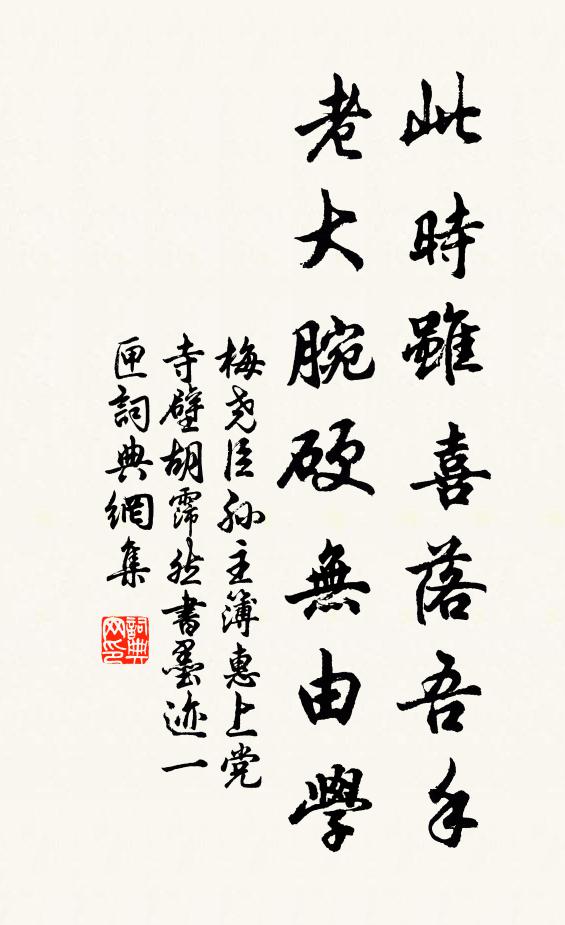 此時雖喜落吾手
老大腕硬無由學
梅尧臣孙主簿惠上党
寺壁胡霈然書墨迹一
匣詞典網集
詞典网印